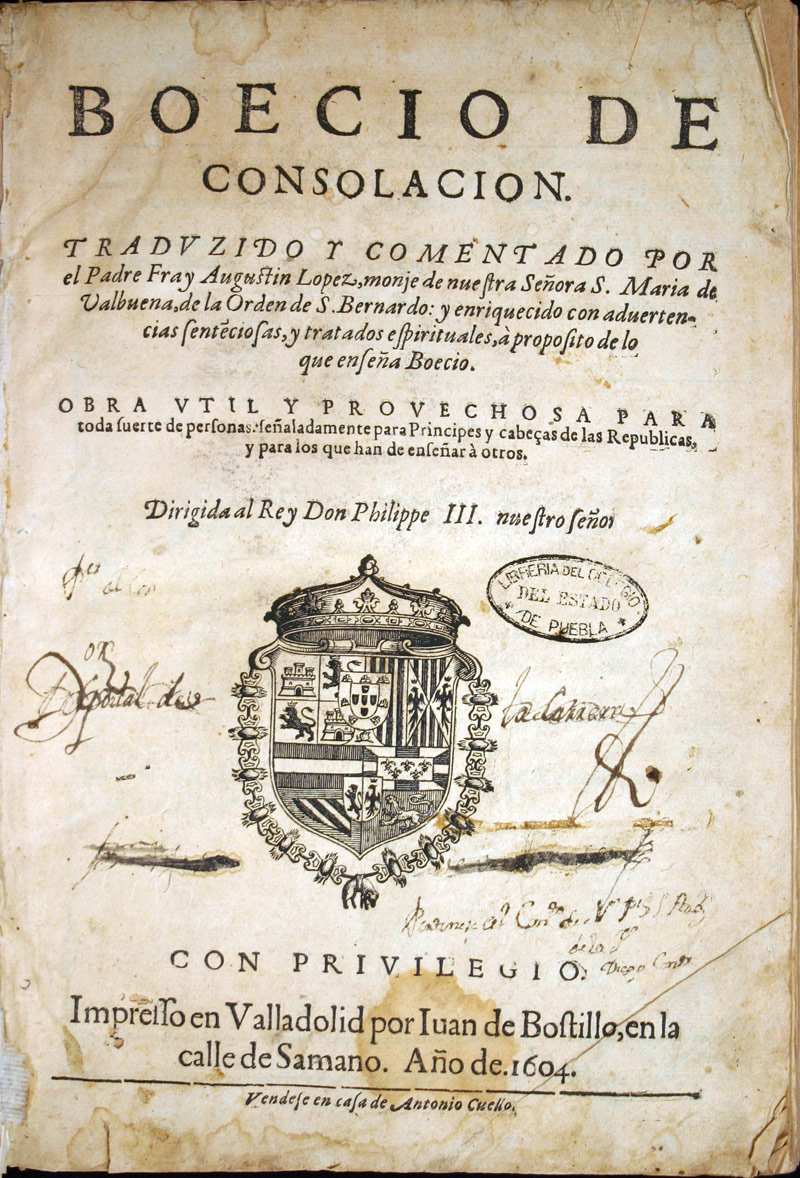 BOECIO DE
CONSOLACION.
TRADVZIDO Y COMENTADO POR
el Padre Fray Augustin Lopez, monje de nueſtra Señora S. Maria de
Valbuena, de la Orden de S. Bernardo: y enriquecido con aduerten-
cias ſentēcioſas, y tratados eſpirituales, à propoſito de lo
que enſeña Boecio.
OBRA VTIL Y PROVECHOSA PARA
toda ſuerte de perſonas: ſeñaladamente para Principes y cabeças de las Republicas,
y para los que han de enſeñar à otros.
Dirigida al Rey Don Philippe III. nueſtro ſeñor
LIBRERIA DEL COLEGIO
DEL ESTADO
DE PUEBLA
CON PRIVILEGIO.
Impreſſo en Valladolid por Iuan de Boſtillo, en la
calle de Samano. Año de.1604.
Vendeſe en caſa de Antonio Cuello.